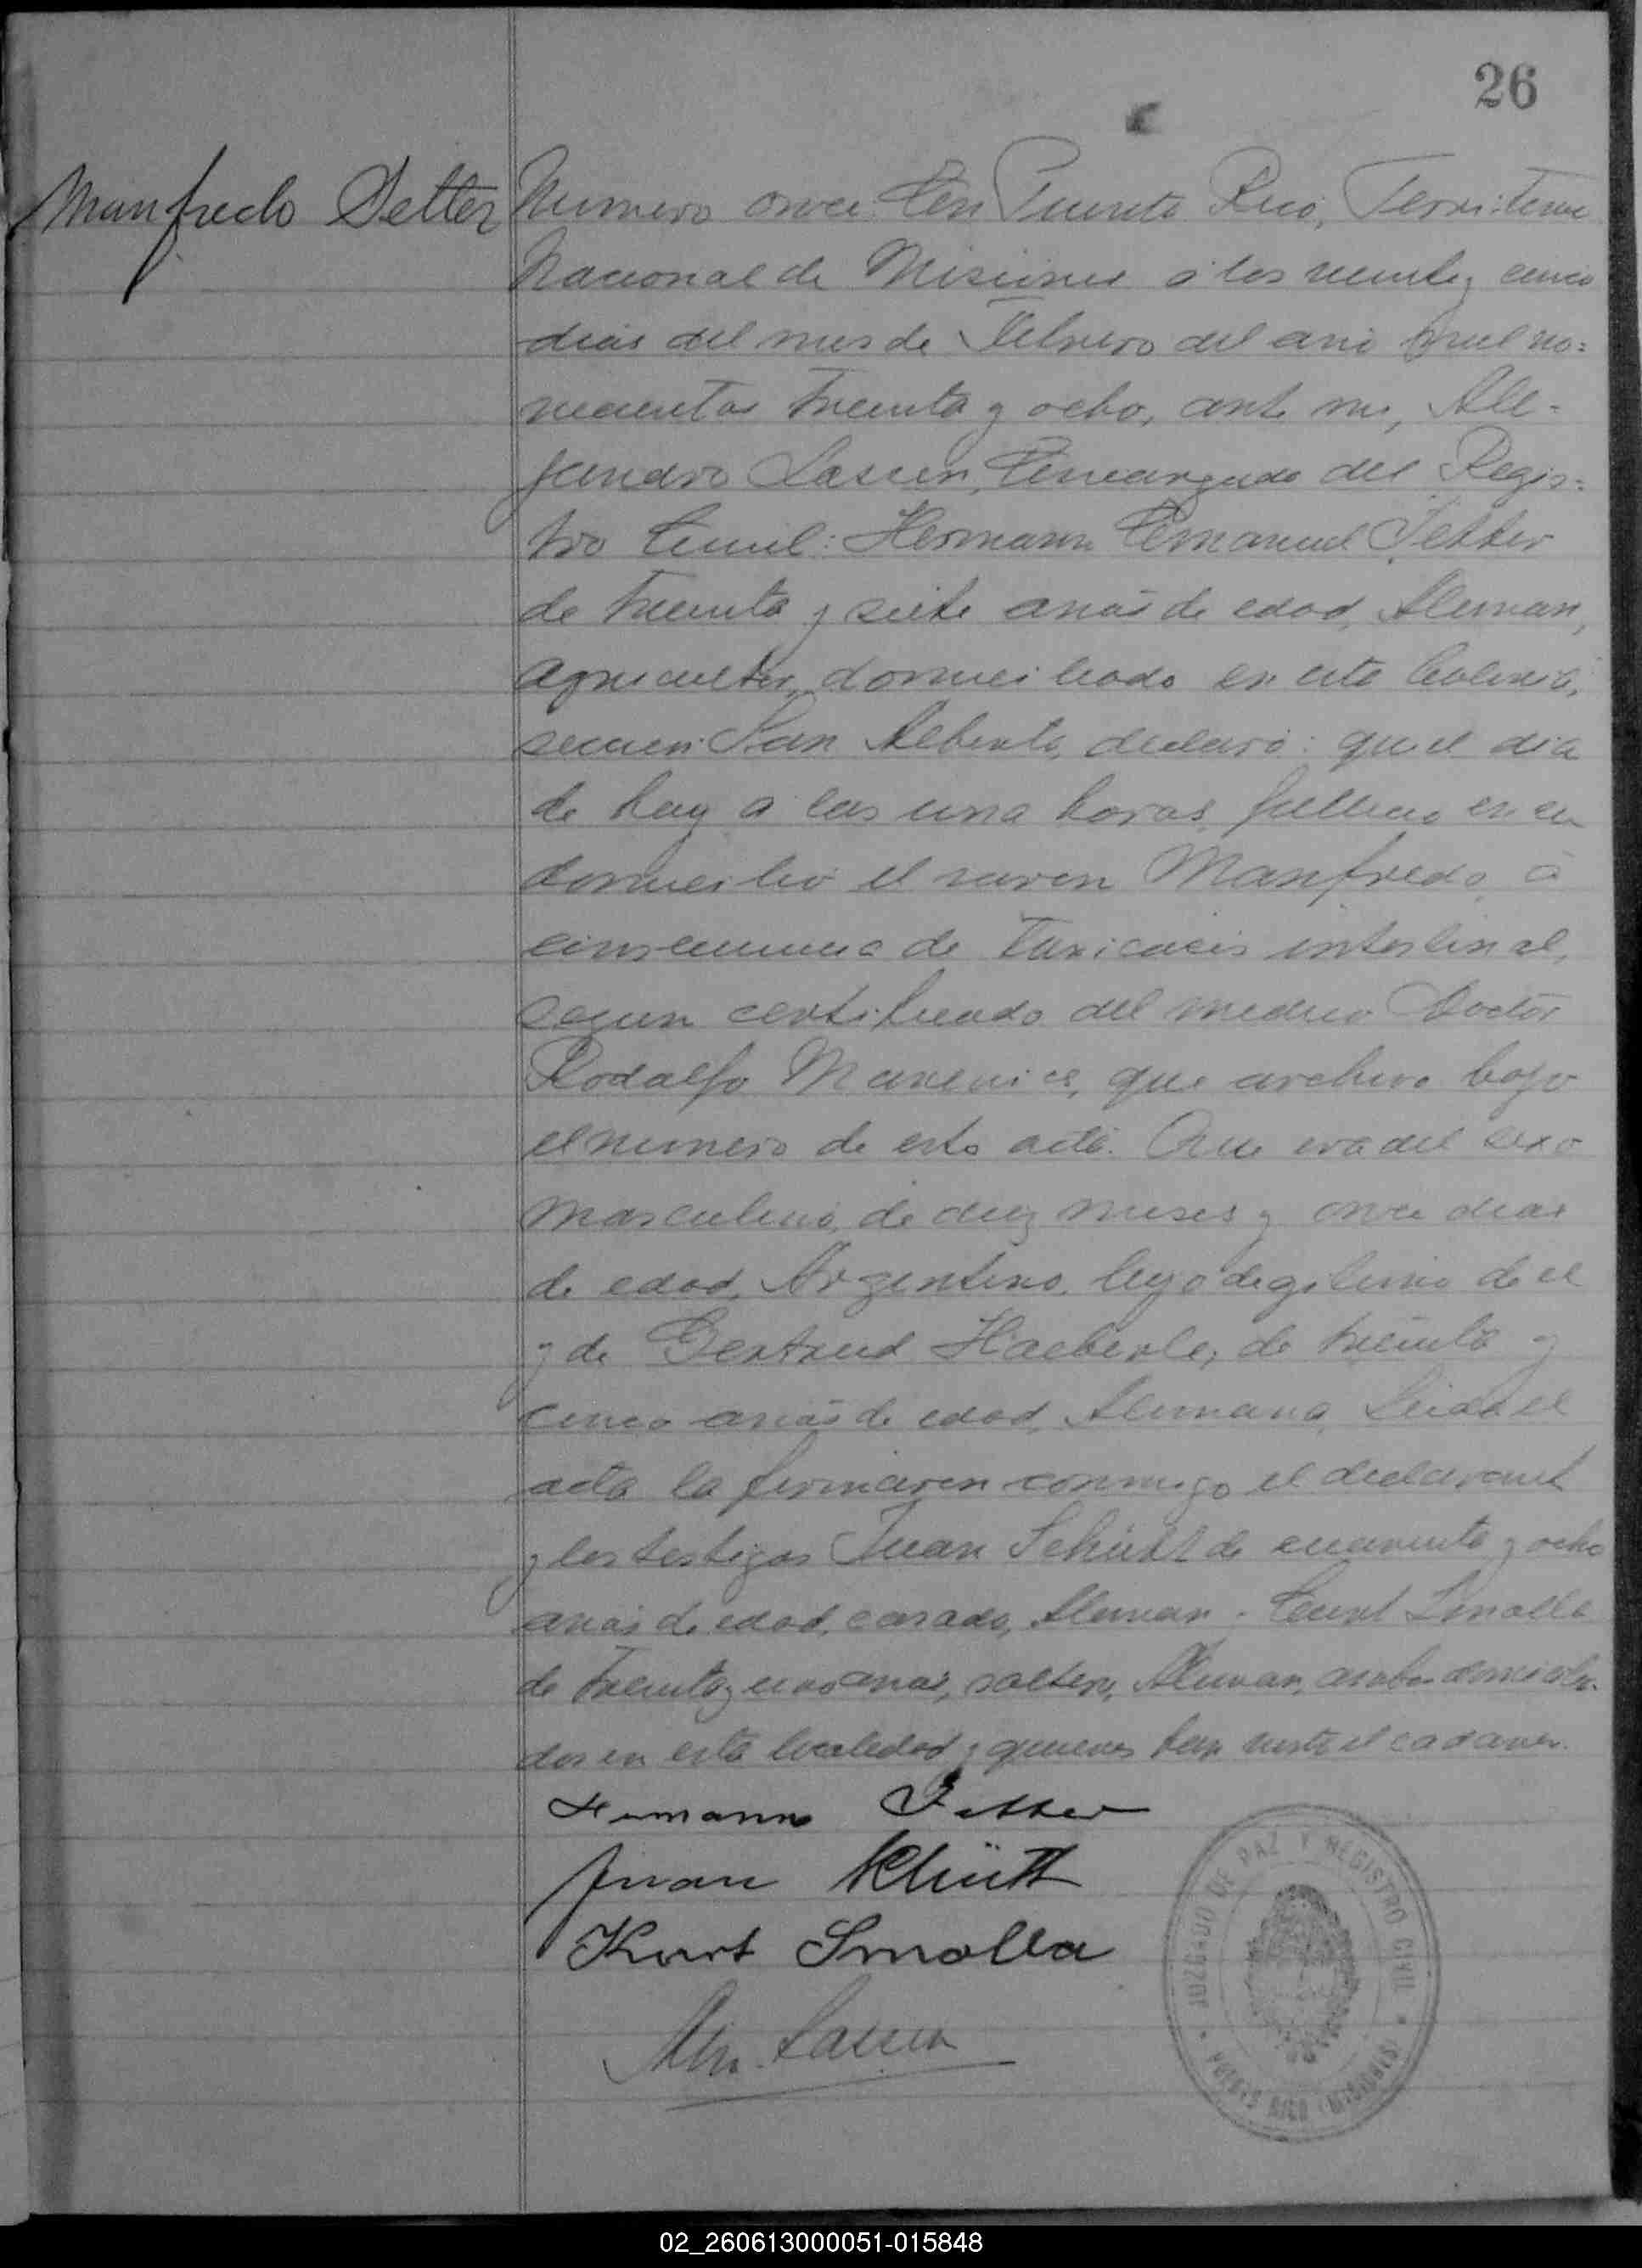 26
Manfredo Jetter
Numero once. En Puerto Rico, Territorio
Nacional de Misiones á los veinte y cinco
dias del mes de Febrero del año mil no=
vecientos treinta y ocho, ante mi, Ale-
jandro Lascen, Encargado del Regis=
tro Civil: Hermann Emanuel Jetter
de treinta y siete años de edad, Aleman,
agricultor, domiciliado en esta Colonia,
seccion San Alberto, declaró: que el dia
de hoy a las una horas fallecio en su
domicilio el varon Manfredo, á
consecuencia de Toxicacion intestinal,
segun certificado del medico Doctor
Rodolfo, que archivo bajo
el numero de esta acta. Que era del sexo
masculino, de diez meses y once dias
de edad, Argentino, hijo legitimo de el
y de Gertrud Haeberle, de treinta y
cinco años de edad, Alemana. Leida el
acta la firmaron conmigo el declarante
y los testigos Juan Schütt de cuarenta y ocho
años de edad, casado, Aleman - Curt Smolla
de treinta y uno años, soltero, Aleman, ambos domicilia-
dos en esta localidad y quienes han visto el cadaver.
Hermann Jetter
Juan Schütt
Kurt Smolla
JUZGADO DE PAZ Y REGISTRO CIVIL
PUERTO RICO (MISIONES)
02_260613000051-015848